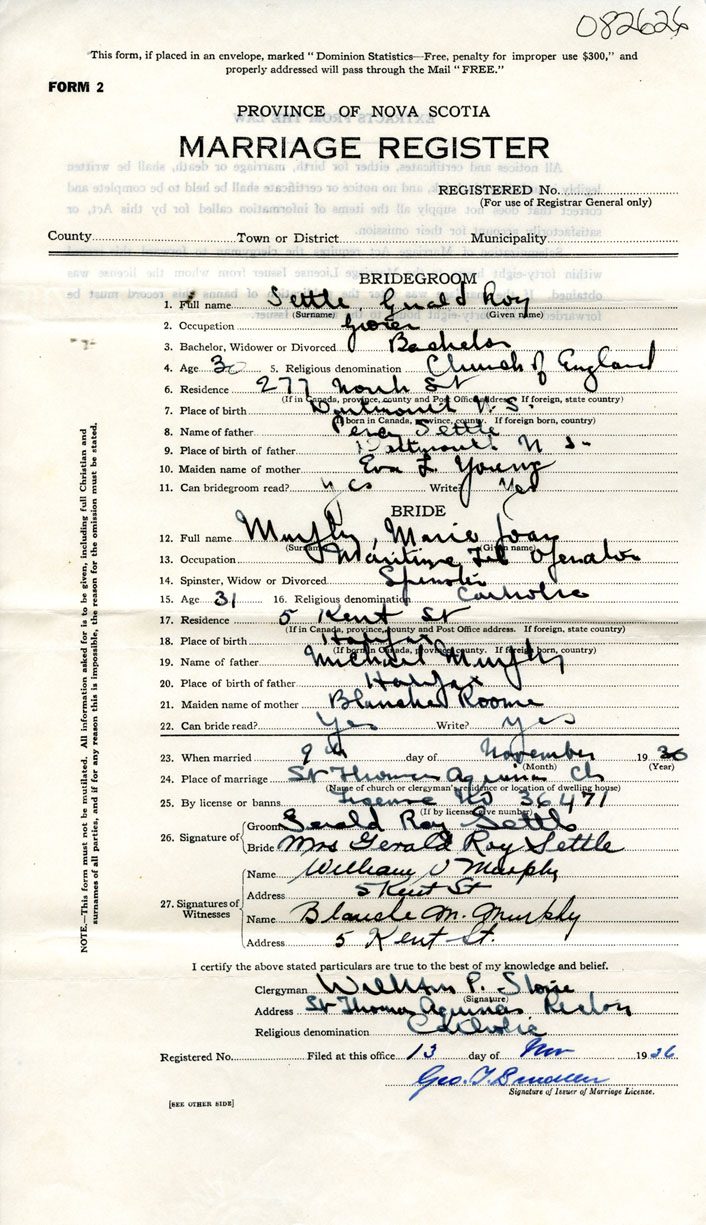 082626
"This form, if placed in an envelope, marked "Dominion Statistics—Free, penalty for improper use $300," and
properly addressed will pass through the Mail "FREE."
FORM 2
PROVINCE OF NOVA SCOTIA
MARRIAGE REGISTER
REGISTERED No.
(For use of Registrar General only)
County Town or District Municipality
BRIDEGROOM
1. Full name Settle, Gerald Roy
(Surname) (Given name)
2. Occupation Grocer
3. Bachelor, Widower or Divorced Bachelor
4. Age 30 5. Religious denomination Church of England
6. Residence 277 North St
(If in Canada, province, county and Post Office address. If foreign, state country)
7. Place of birth Dartmouth N.S.
(If born in Canada, province, county. If foreign born, country)
8. Name of father Percy Settle
9. Place of father Dartmouth N S
10. Maiden name of mother Eva L. Young
11. Can bridegroom read? Yes Write? Yes
BRIDE
12. Full name Murphy, Marie Joan
(Surname) (Given name)
13. Occupation Maritime Tel Operator
14. Spinster, Widow or Divorced Spinster
15. Age 31 16. Religious denomination Catholic
17. Residence 5 Kent St
(If in Canada, province, county and Post Office address. If foreign, state country)
18. Place of birth Halifax
(If born in Canada, province, county. If foreign born, country)
19. Name of father Michael Murphy
20. Place of birth of father Halifax
21. Maiden name of mother Blanche Roome
22. Can bride read? Yes Write? Yes
23. When married 9th day of November 1936
(Month) (Year)
24. Place of marriage St Thomas Aquinas Ch
(Name of church or clergyman's residence or location of dwelling house)
25. By license or banns License No 36471
(If by license give number)
26. Signature of
Groom Gerald Roy Settle
Bride Mrs Gerald Roy Settle
27. Signatures of Witnesses
Name William V Murphy
Address 5 Kent St
Name Blanche M. Murphy
Address 5 Kent St.
I certify the above stated particulars are true to the best of my knowledge and belief.
Clergyman William P.
(Signature)
Address St Thomas Aquinas
Religious denomination Catholic
Registered No. Filed at this office 13 day of Nov 1936
Geo. T.
Signature of Issuer of Marriage License.
[SEE OTHER SIDE]
NOTE.—This form must not be mutilated. All information asked for is to be given, including full Christian and
surnames of all parties, and if for any reason this is impossible, the reason for the omission must be stated.